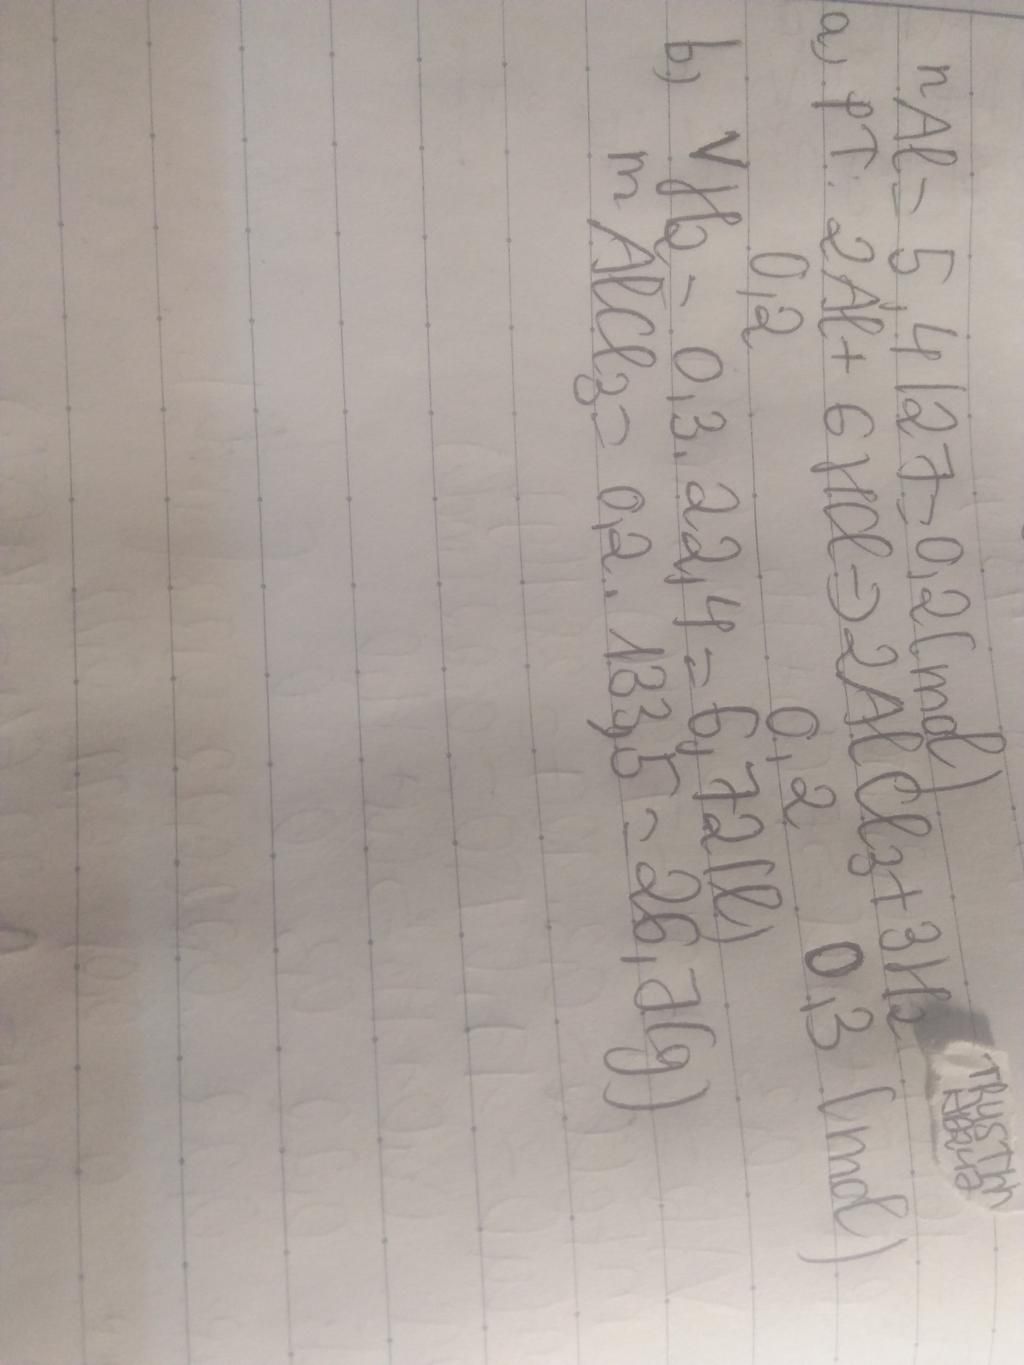 nAl = 5,4 : 27 = 0,2 (mol)
a, PT: 2Al + 6HCl → 2AlCl3 + 3H2
0,2 0,2 0,3 (mol)
b, VH2 = 0,3 . 22,4 = 6,72 (l)
mAlCl3 = 0,2 . 133,5 = 26,7 (g)